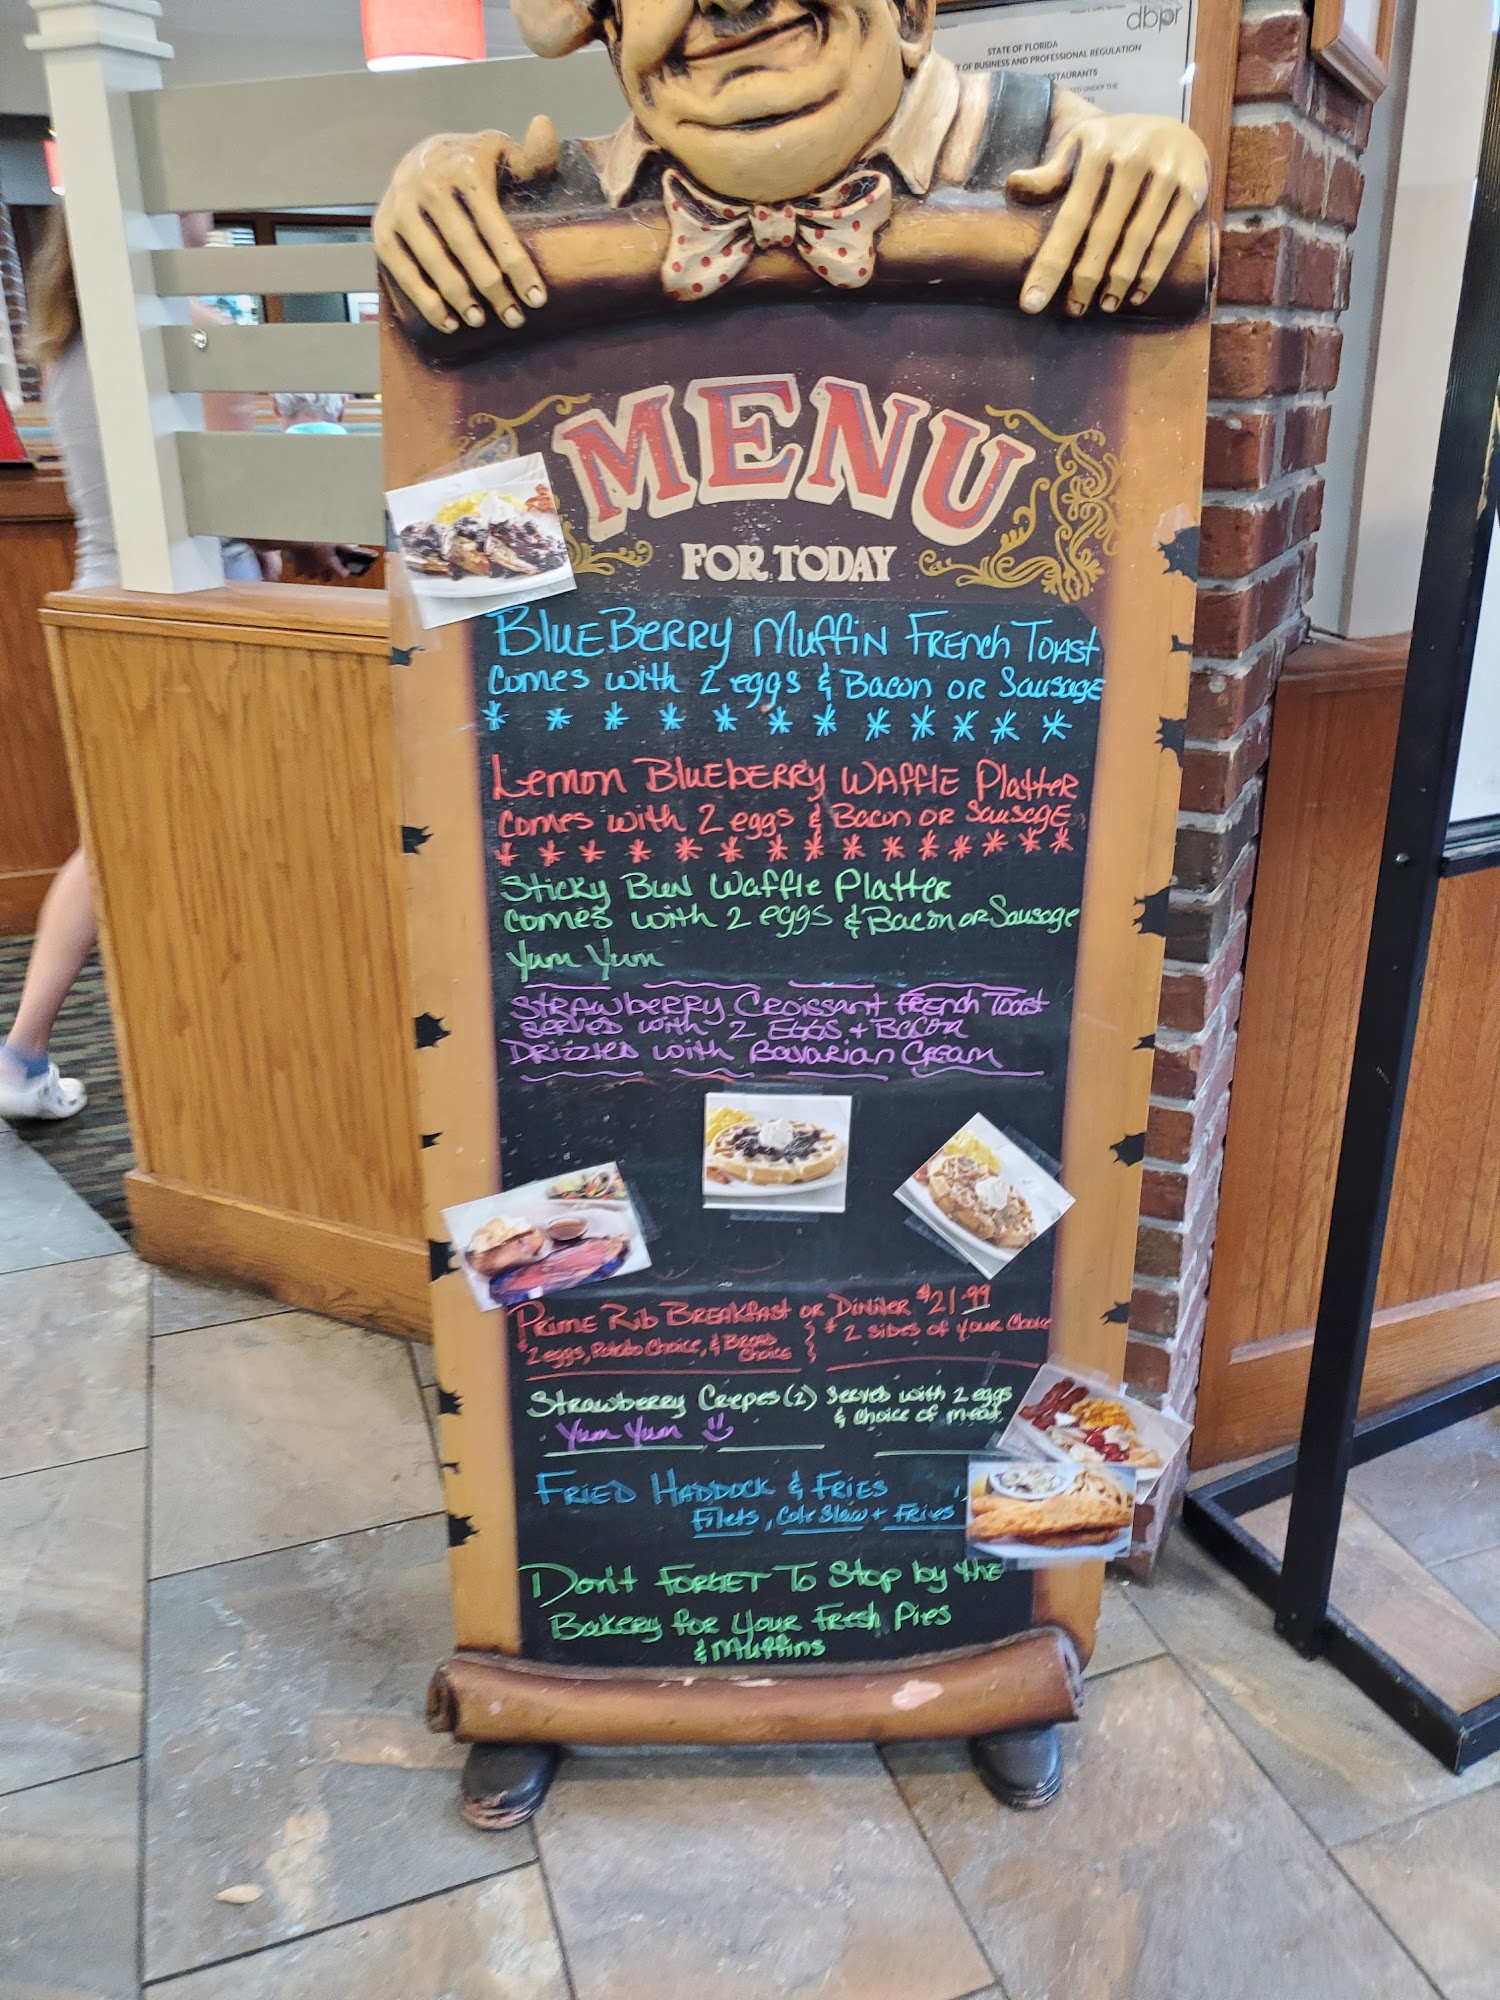 dbpr
STATE OF FLORIDA
T OF BUSINESS AND PROFESSIONAL REGULATION
MENU
FOR TODAY
BLUEBERRY MUFFIN FRENCH TOAST
COMES WITH 2 eggs & Bacon OR Sausage
* * * * * * * * * * * *
Lemon BLUEBERRY WAFFLE Platter
comes with 2 eggs & Bacon OR Sausage
* * * * * * * * * * * * * *
Sticky Bun Waffle Platter
comes with 2 eggs & Bacon or Sausage
Yum Yum
STRAWBERRY Croissant FRENCH Toast
SERVED with 2 EGGS + Bacon
DRIZZLED with Bavarian CREAM
PRIME RIB BREAKFAST OR DINNER $21.99
2 eggs, Potato Choice, & BREAD Choice
2 sides of your choice
Strawberry Crepes (2) Served with 2 eggs
& choice of meat.
Yum Yum
FRIED HADDOCK & FRIES
Filets, Cole Slaw + FRIES
Don't FORGET To Stop by the
Bakery for your Fresh Pies
& Muffins